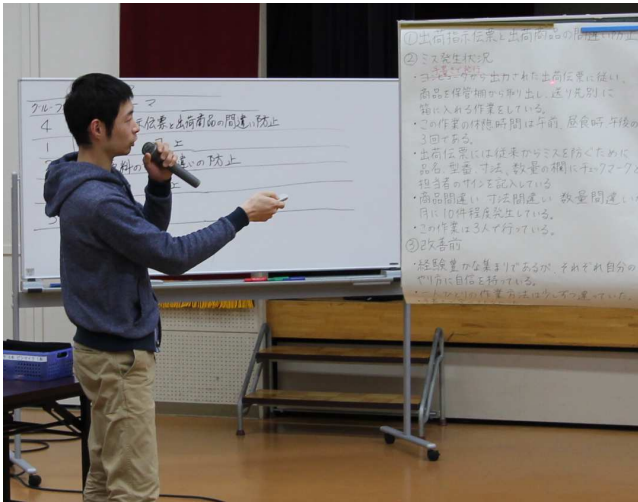 グループ
マ
4
示伝票と出荷商品の間違い防止
1
上
料の
違いの防止
上
①出荷指示伝票と出荷商品の間違い防止
②ミス発生状況
・コンピュータから出力された出荷伝票に従い、
商品を保管棚から取り出し、送り先別に
箱に入れる作業をしている。
・この作業の休憩時間は午前、昼食時、午後の
3回である。
・出荷伝票には従来からミスを防ぐために
品名、型番、寸法、数量の欄にチェックマークと
担当者のサインを記入している
・商品間違い、寸法間違い、数量間違い
月に10件程度発生している。
・この作業は3人で行っている。
③改善前
・経験豊かな集まりであるが、それぞれ自分の
やり方に自信を持っている。
の作業方法は少しずつ違っていた。